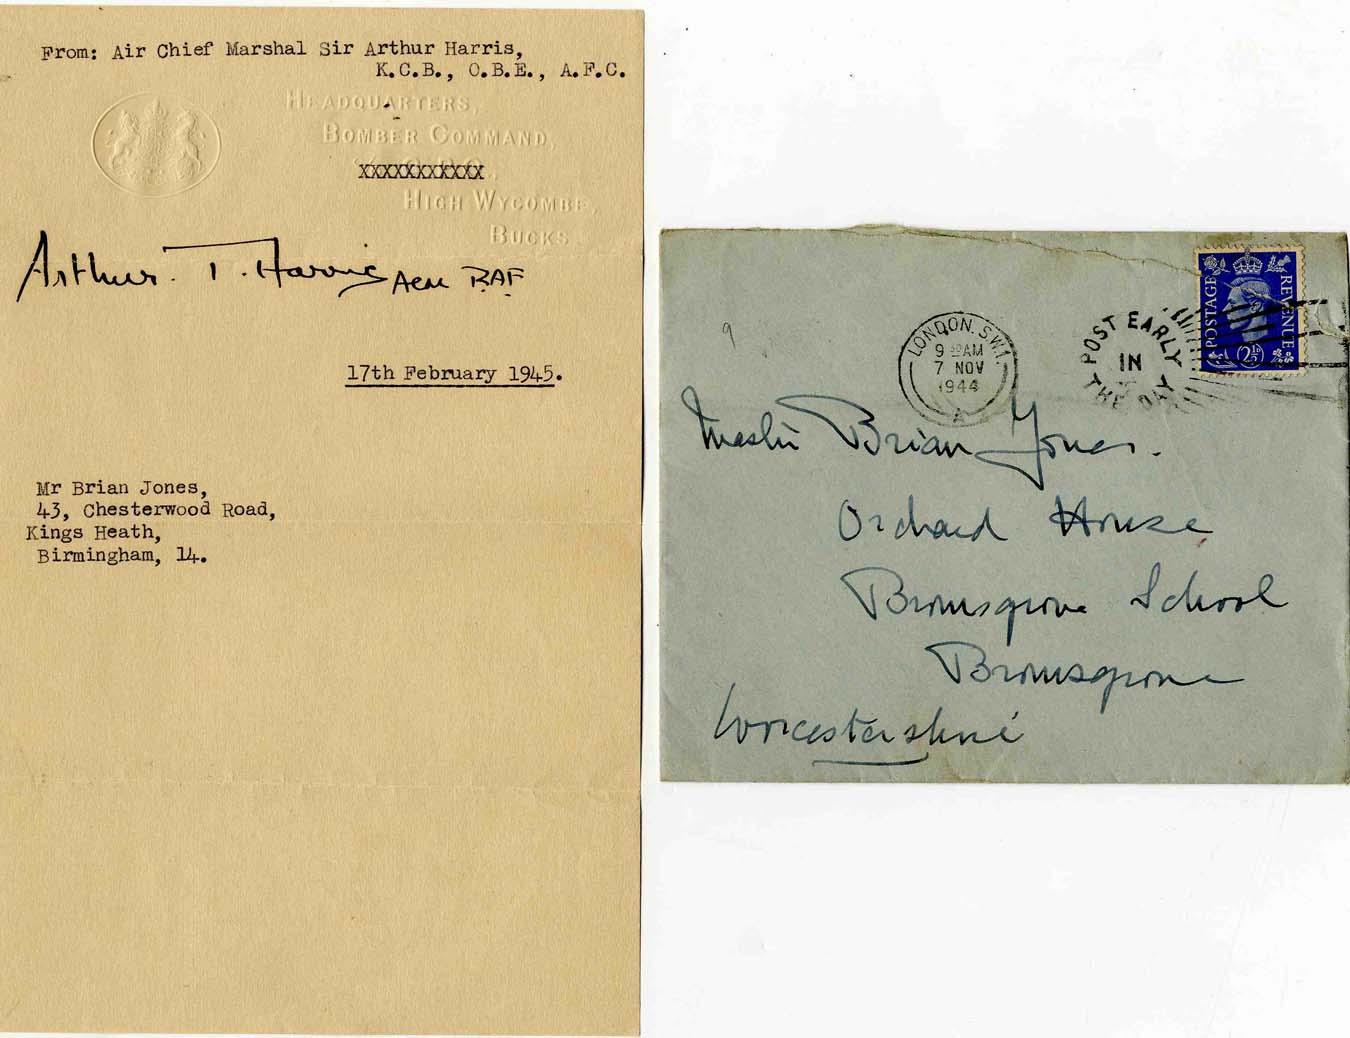 From: Air Chief Marshal Sir Arthur Harris,
K.C.B., O.B.E., A.F.C.
HEADQUARTERS,
BOMBER COMMAND,
XXXXXXXXXXX
HIGH WYCOMBE,
BUCKS
Arthur. T. Harris ACM RAF
17th February 1945.
Mr Brian Jones,
43, Chesterwood Road,
Kings Heath,
Birmingham, 14.
9
LONDON. S.W.1.
9 AM
7 NOV
1944
A
POST EARLY
IN
THE DAY
POSTAGE
REVENUE
2½D
Master Brian Jones.
Orchard House
Bromsgrove School
Bromsgrove
Worcestershire